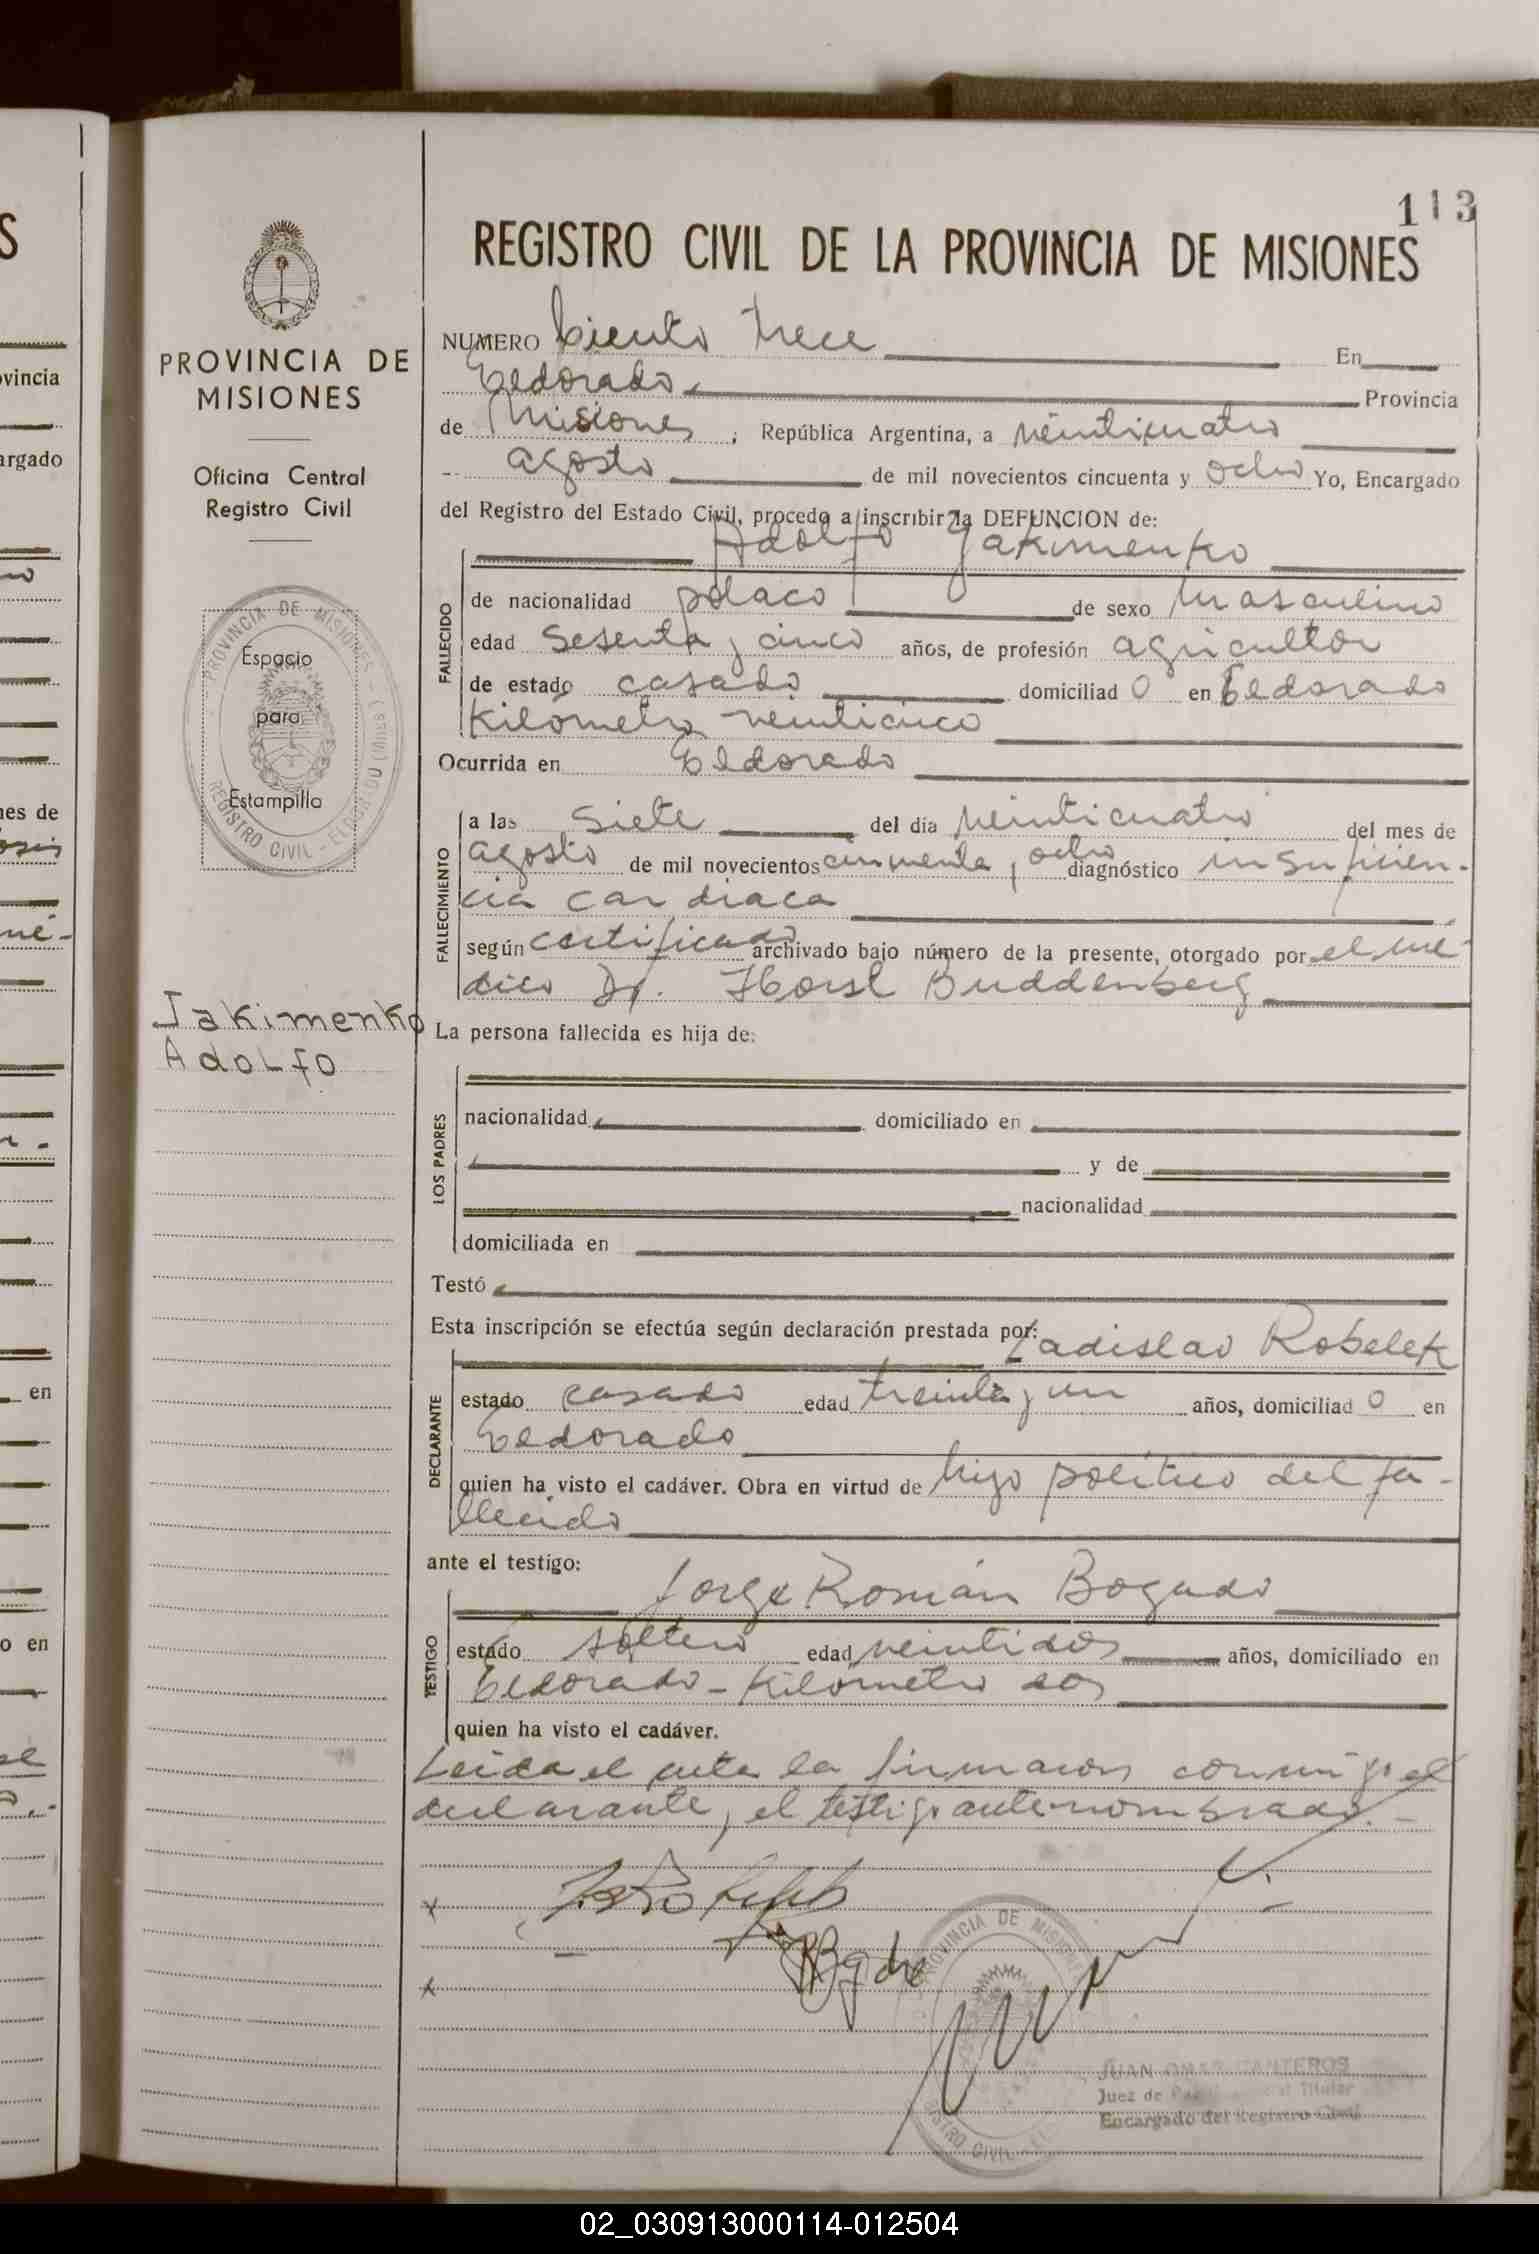 113
REGISTRO CIVIL DE LA PROVINCIA DE MISIONES
PROVINCIA DE
MISIONES
Oficina Central
Registro Civil
PROVINCIA DE MISIONES
REGISTRO CIVIL - ELDORADO (MISIONES)
Espacio
para
Estampilla
Jakimenko
Adolfo
NUMERO Ciento trece En
Eldorado Provincia
de Misiones, República Argentina, a veinticuatro
agosto de mil novecientos cincuenta y ocho Yo, Encargado
del Registro del Estado Civil, procedo a inscribir la DEFUNCION de:
Adolfo Jakimenko
FALLECIDO
de nacionalidad polaco de sexo masculino
edad sesenta y cinco años, de profesión agricultor
de estado casado domiciliad o en Eldorado
Kilómetro veinticinco
Ocurrida en Eldorado
FALLECIMIENTO
a las siete del día veinticuatro del mes de
agosto de mil novecientos cincuenta y ocho diagnóstico insuficien-
cia cardiaca
según certificado archivado bajo número de la presente, otorgado por el mé-
dico Dr. Horst Buddenberg
La persona fallecida es hija de:
LOS PADRES
nacionalidad domiciliado en
y de
nacionalidad
domiciliada en
Testó
Esta inscripción se efectúa según declaración prestada por: Ladislao Robelek
DECLARANTE
estado casado edad treinta y un años, domiciliad o en
Eldorado
quien ha visto el cadáver. Obra en virtud de hijo político del fa-
llecido
ante el testigo:
Jorge Román Bogado
TESTIGO
estado soltero edad veintidos años, domiciliado en
Eldorado - Kilómetro dos
quien ha visto el cadáver.
Leida el acta la firmaron conmigo el
declarante y el testigo antenombrado.-
PROVINCIA DE MISIONES
REGISTRO CIVIL - EL
JUAN OMAR CANTEROS
Juez de Paz Titular
Encargado del Registro Civil
vincia
argado
nes de
en
o en
02_030913000114-012504